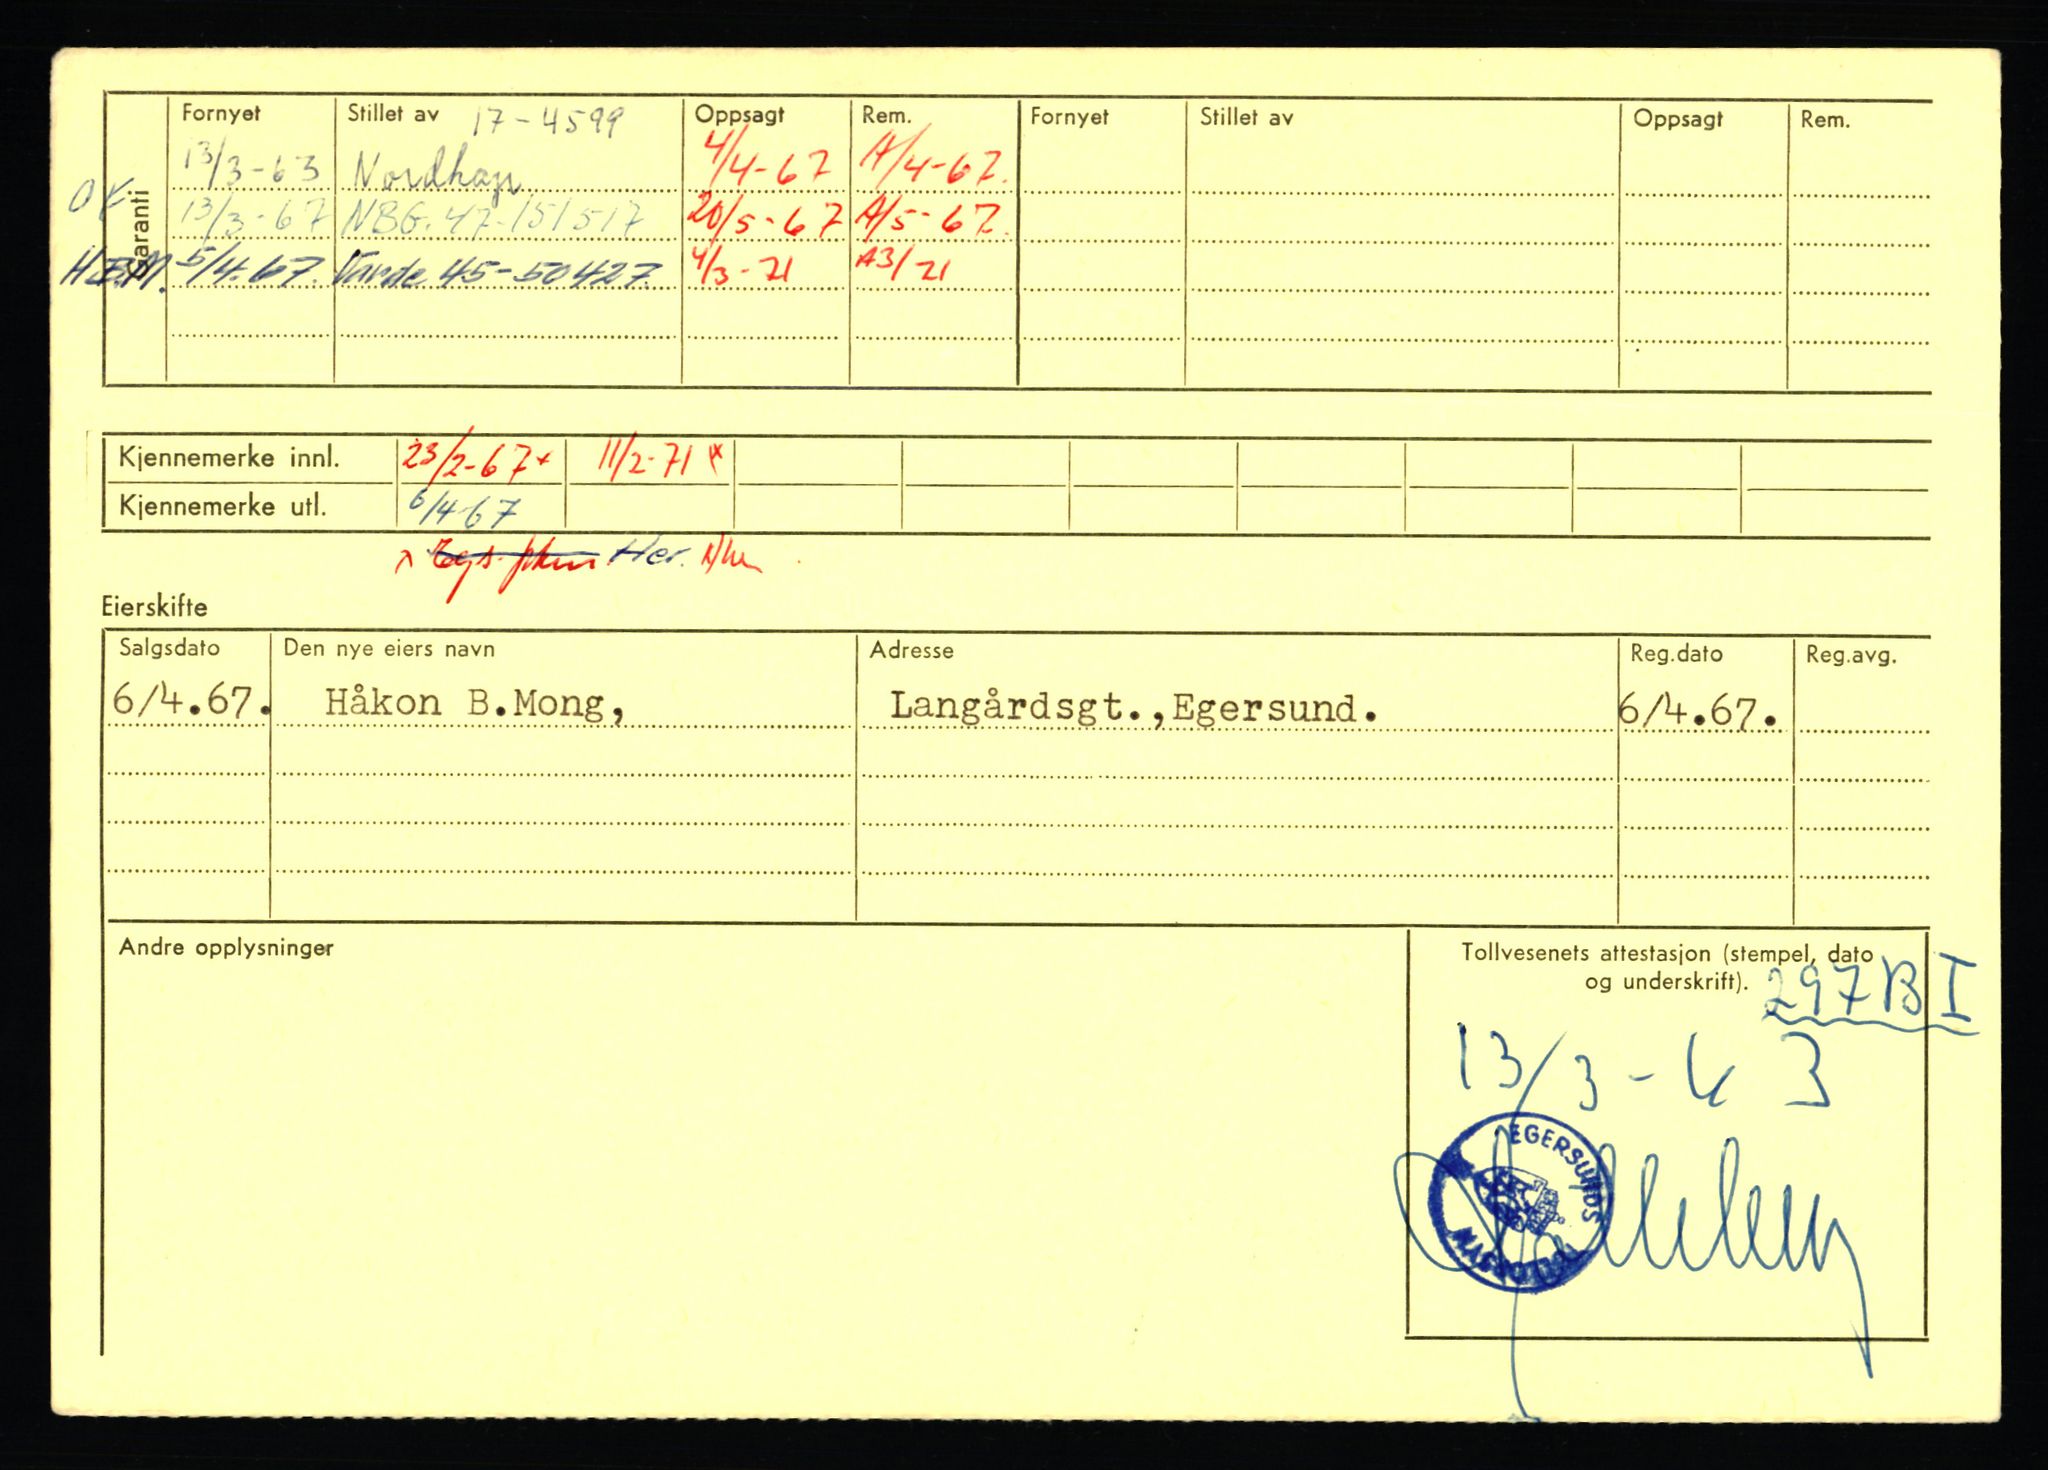 Fornyet Stillet av 17-4599 Oppsagt Rem. Fornyet Stillet av Oppsagt Rem.
Garanti
13/3-63 4/4-67 A/4-67.
OK 13/3-67 NBG. 47-151517 20/5-67 A/5-67.
H.B.M. 5/4.67. Varde 45-50427. 4/3-71 A3/71
Kjennemerke innl. 23/2-67+ 11/2-71 x
Kjennemerke utl. 6/4-67
Her.
Eierskifte
Salgsdato Den nye eiers navn Adresse Reg.dato Reg.avg.
6/4.67. Håkon B.Mong, Langårdsgt.,Egersund. 6/4.67.
Andre opplysninger
Tollvesenets attestasjon (stempel, dato
og underskrift).
297 B I
13/3-63
EGERSUNDS